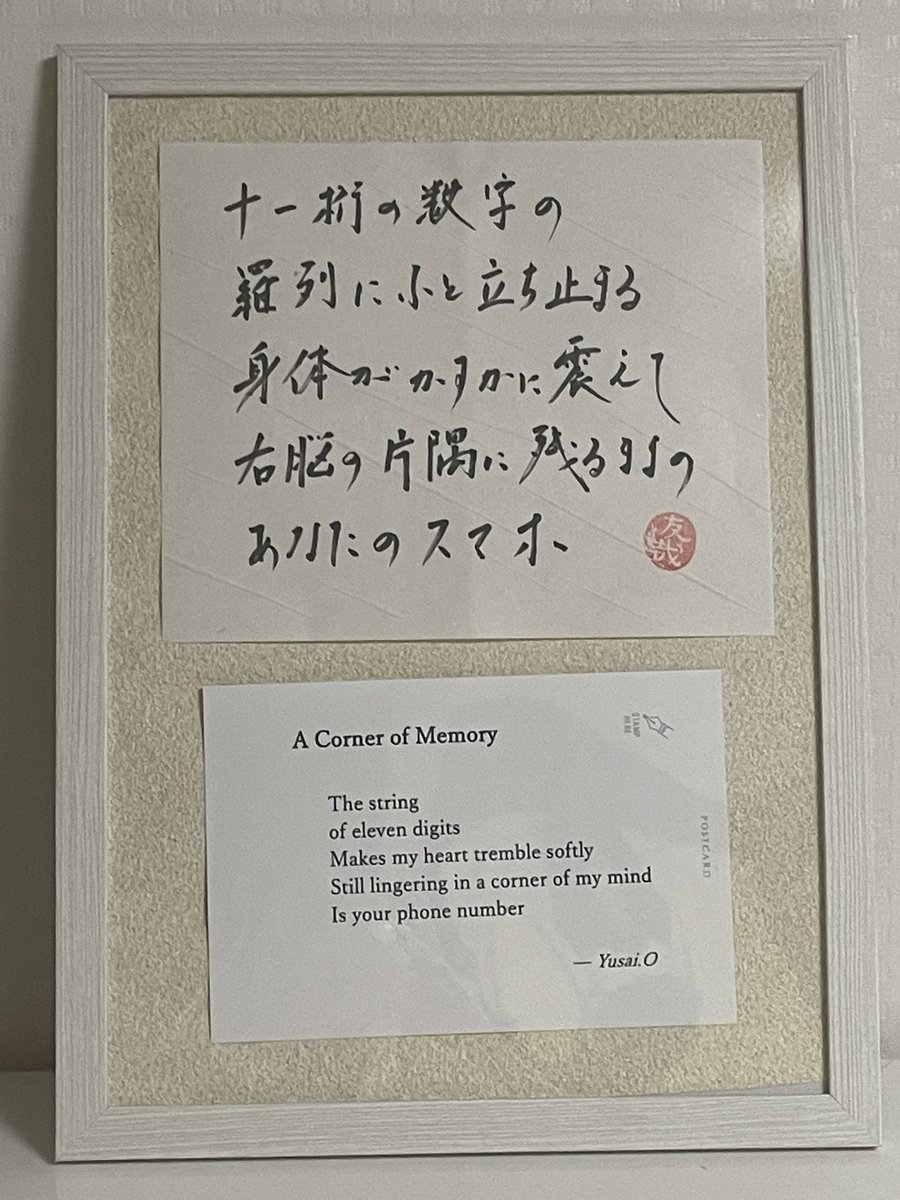 十一桁の数字の
羅列にふと立ち止まる
身体がかすかに震えて
右脳の片隅に残るままの
あなたのスマホ
友哉
A Corner of Memory
STAMP
HERE
The string
of eleven digits
Makes my heart tremble softly
Still lingering in a corner of my mind
Is your phone number
POSTCARD
— Yusai.O